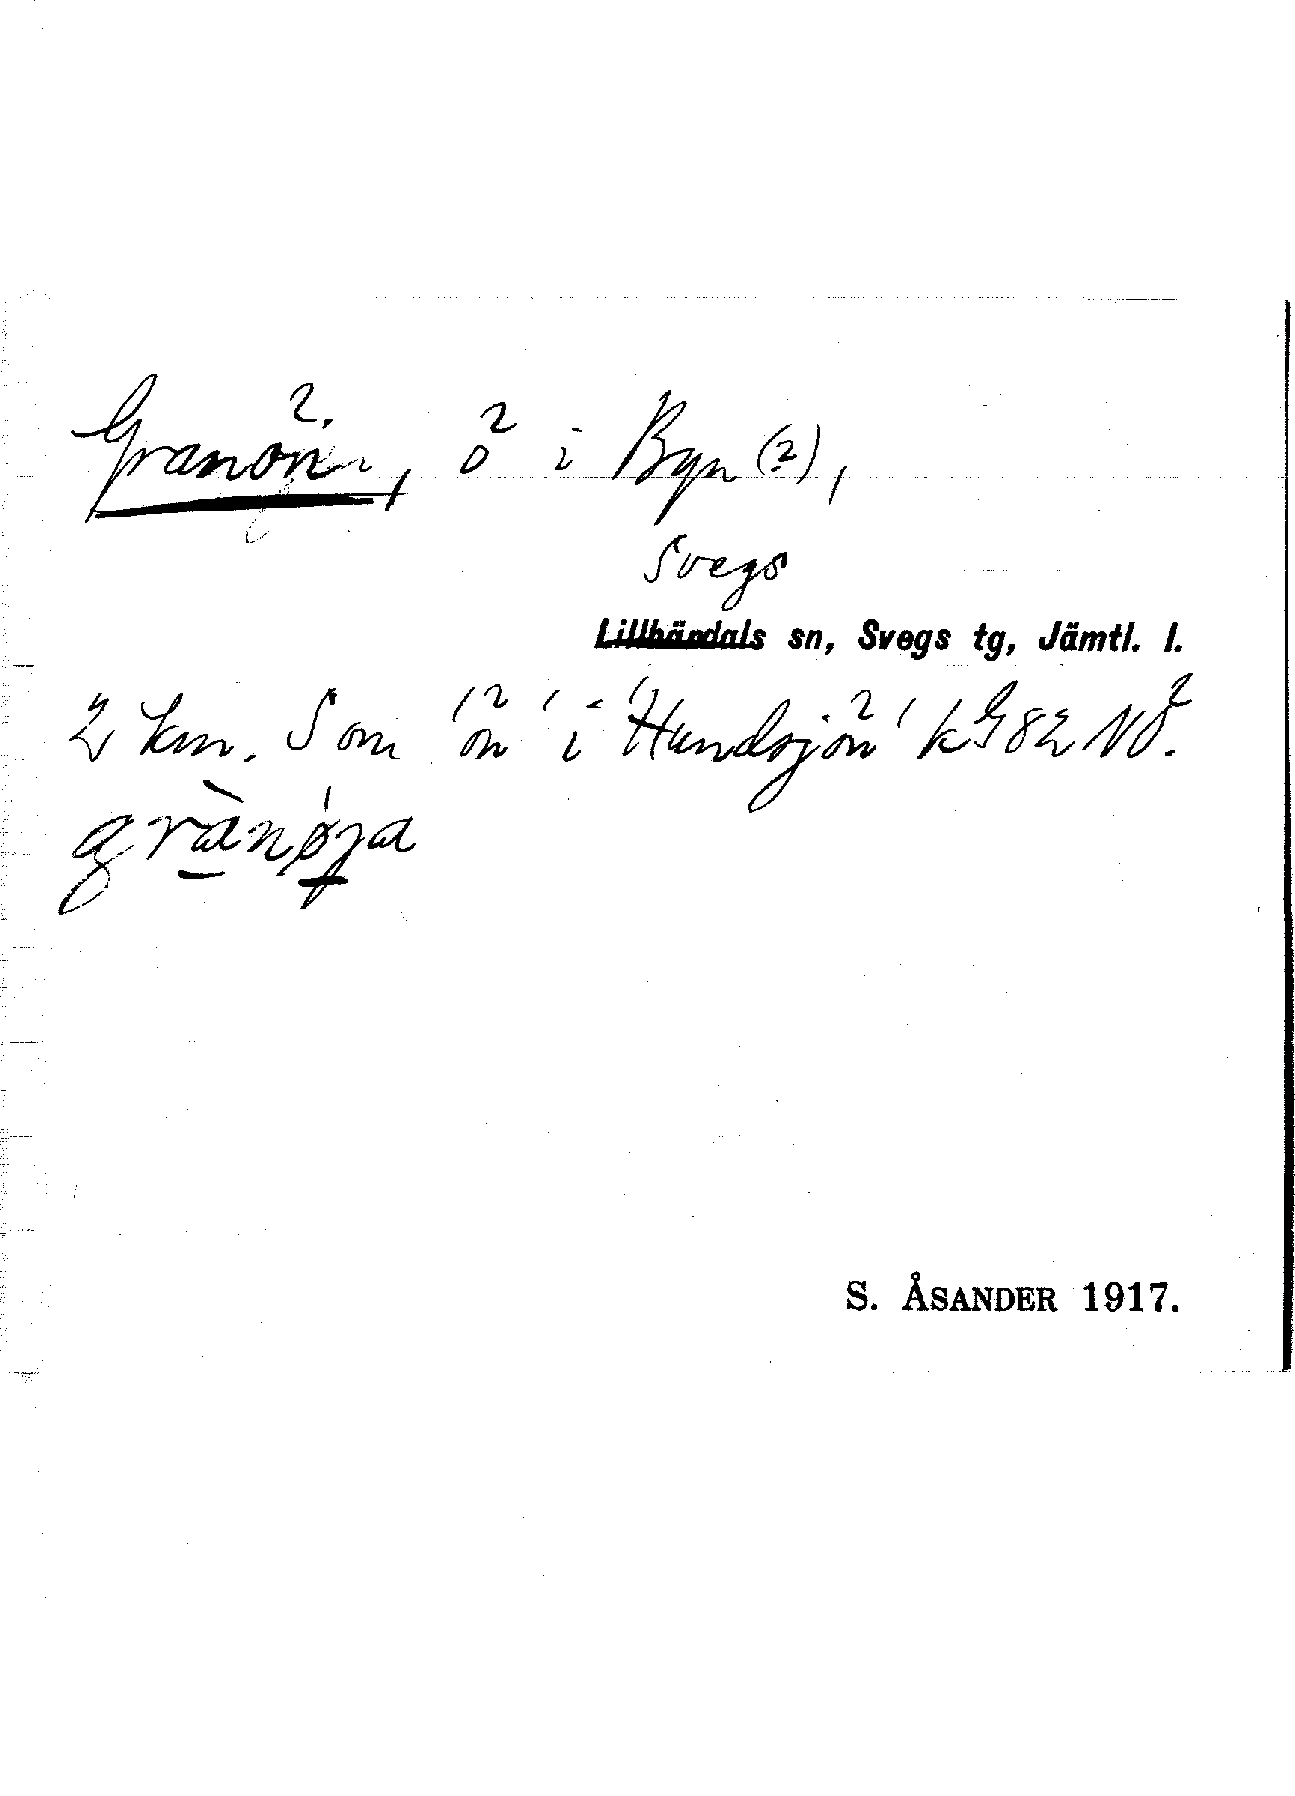 Granön, ö i Byn (2),
Svegs
Lillhärdals sn, Svegs tg, Jämtl. l.
2 km. Som 'ön' i 'Hundsjön' k G82 NÖ.
grànøja
S. ÅSANDER 1917.